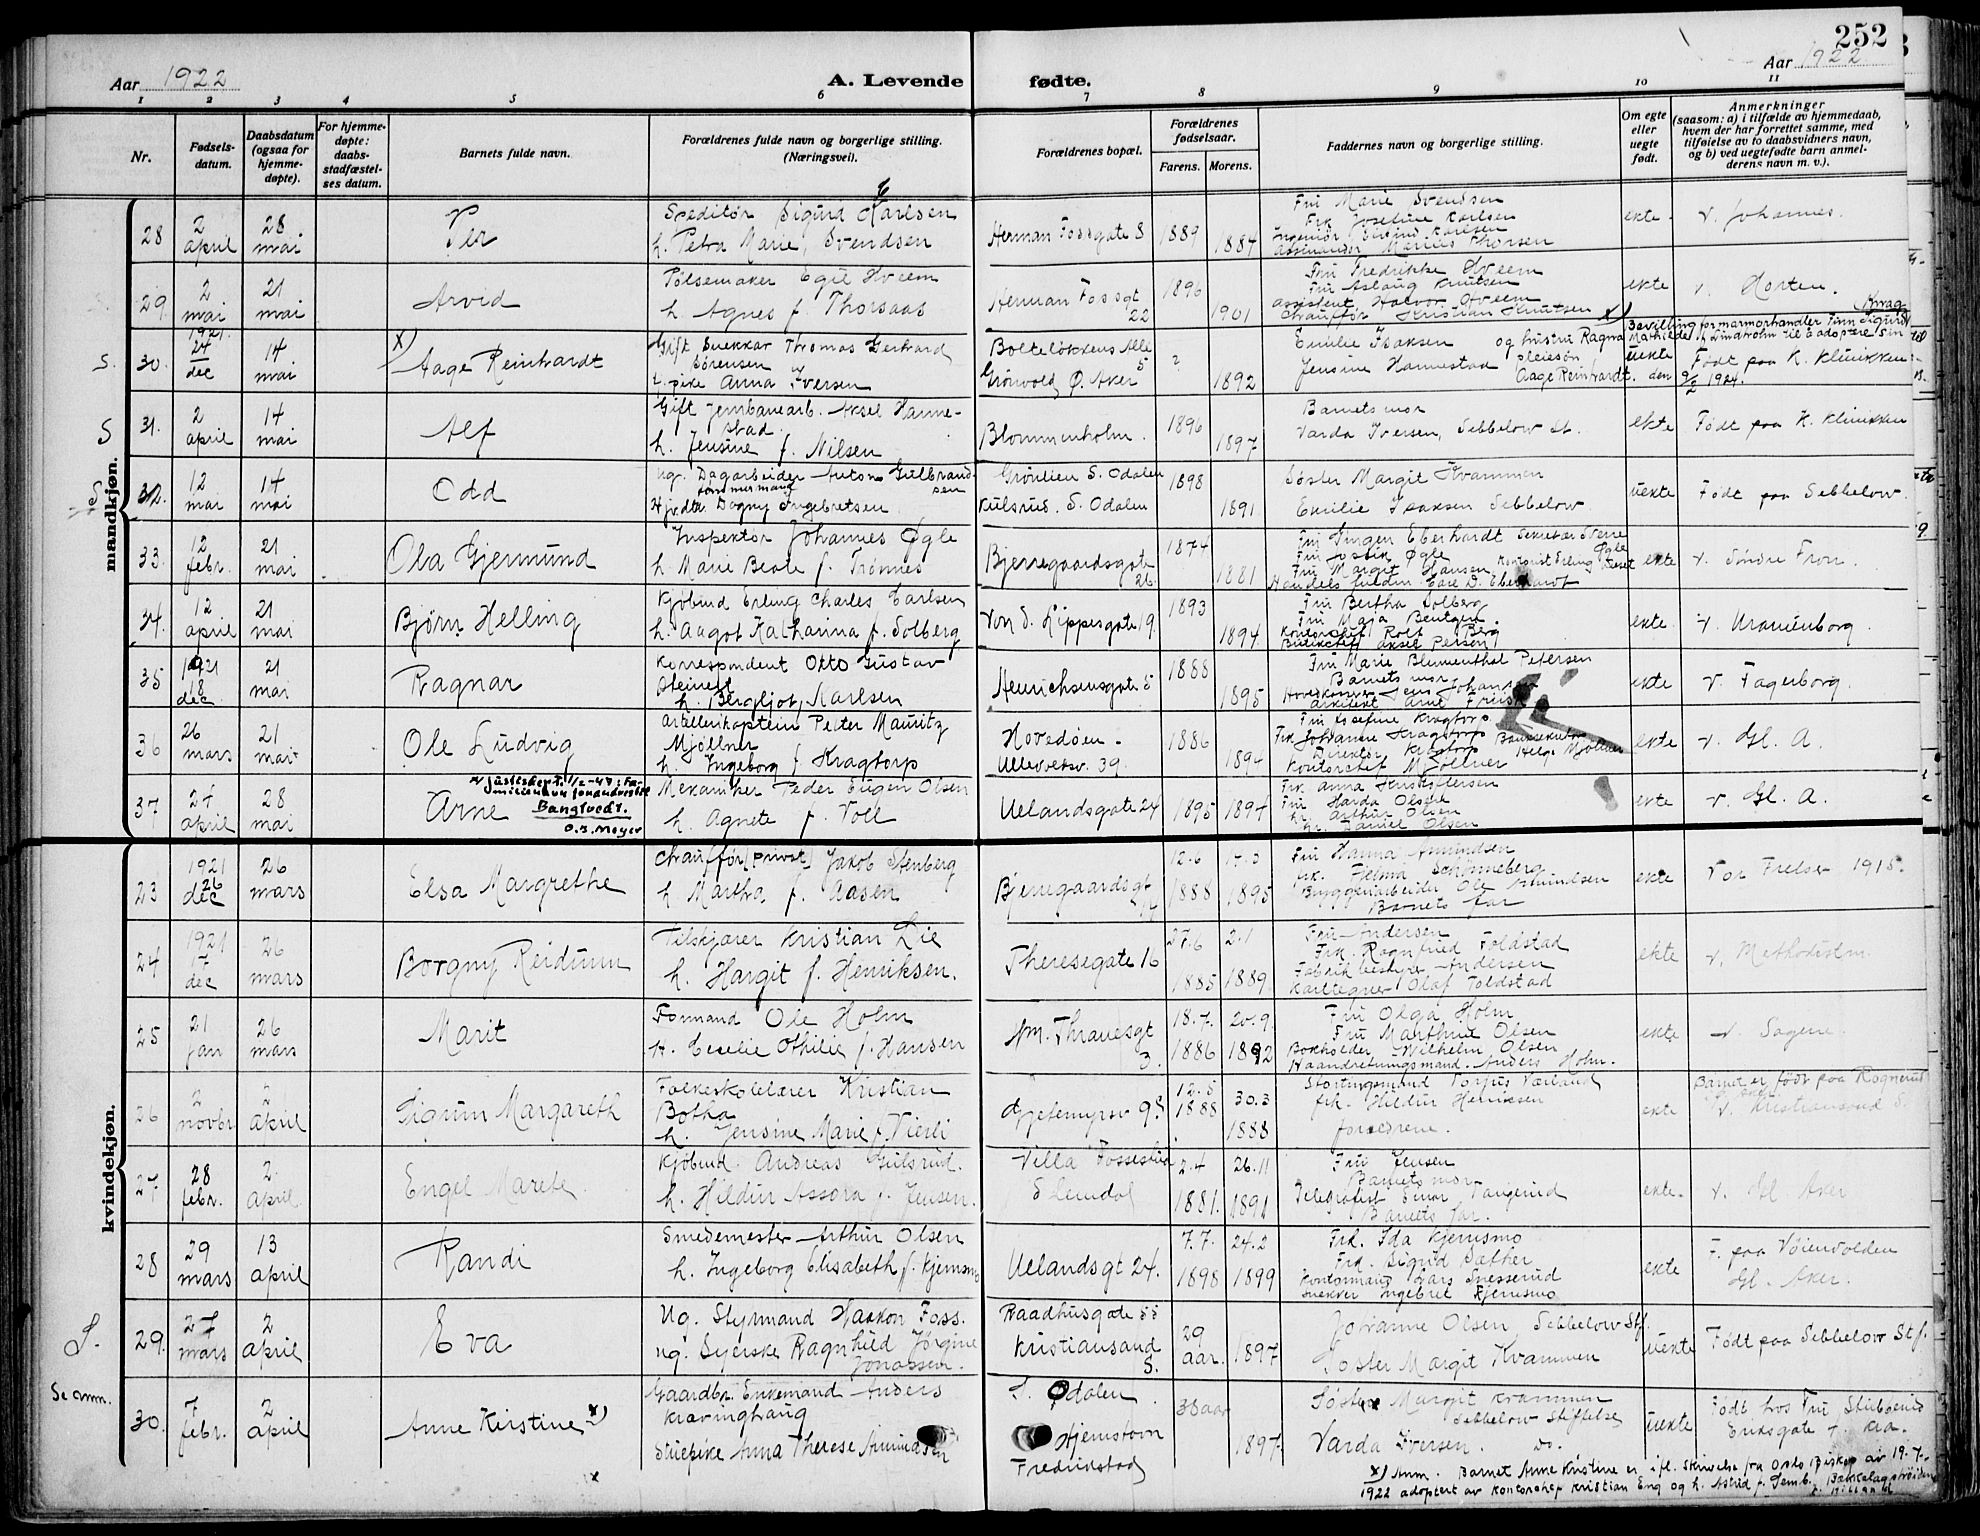 252
Aar 1922
A. Levende fødte.
Aar 1922
1 2 3 4 5 6 7 8 9 10 11
Nr.
Fødsels-
datum.
Daabsdatum
(ogsaa for
hjemme-
døpte).
For hjemme-
døpte:
daabs-
stadfæstel-
ses datum.
Barnets fulde navn.
Forældrenes fulde navn og borgerlige stilling.
(Næringsvei).
Forældrenes bopæl.
Forældrenes
fødselsaar.
Farens. Morens.
Faddernes navn og borgerlige stilling.
Om egte
eller
uegte
født.
Anmerkninger
(saasom: a) i tilfælde av hjemmedaab,
hvem der har forrettet samme, med
tilføielse av to daabsvidners navn,
og b) ved uegtefødte barn anmel-
derens navn m. v.).
mandkjøn.
28
2
april
28
mai
Per
Speditør Sigurd Karlsen
h. Petra Marie, Svendsen
Herman Fossgate 8
1889
1884
Fru Marie Svendsen
Frk Josefine Karlsen
Ingeniør Karlsen
Marius Thorsen
ekte
v. Johannes.
29
2
mai
21
mai
Arvid
Pølsemaker Egil Hveem
h. Agnes f. Thorsaas
Herman Fossgt
22
1896
1901
Fru Fredrikke Hveem
Fru Aslaug Knutsen
Assistent Halvor Hveem
Chauffør Kristian Knutsen
ekte
v. Horten.
S.
30.
1921.
24
dec
14
mai
x)
Aage Reinhardt
Gift Snekker Thomas Gerhard
Sørensen
t. pike Anna Iversen
Bolteløkkens Alle
5
Grønvold, Ø. Aker
?
1892
Emilie Isaksen
Jensine Hannestad
x) Bevilling for marmorhandler Finn Sigurd Krag
og hustru Ragna Mathilde f. Lindholm til å adoptere sin
pleiesøn
Aage Reinhardt. den 9/2 1924.
uekte
Født paa K. Klinikken
S
31.
2
april
14
mai
Alf
Gift Jernbanearb. Aksel Hanne-
stad.
h. Jensine f. Nilsen
Blommenholm.
1896
1897
Barnets mor
Varda Iversen, Sebbelow St.
ekte
Født paa K. Klinikken
S
32.
12
mai
14
mai
Odd
Ug. Dagarbeider Anton Gulbrand-
sen
Dagny Ingebretsen
Grønlien S. Odalen
Kulsrud. S. Odalen
1898
1891
Søster Margit Kvammen
Emilie Isaksen Sebbelow
uekte
Født paa Sebbelow.
33.
12
febr.
21
mai
Ola Gjermund
Inspektør Johannes Øgle
h. Marie Beate f. Trønnes
Bjerregaardsgate
26.
1874
1881
Fru Eberhardt Sekretær Sverre
Øgle
Fru Margit Hansen
ekte
v. Søndre Fron.
34.
12
april
21
mai
Bjørn Helling
Kjøbmd Erling Charles Carlsen
h. Aagot Katharina f. Solberg
Von d. Lippesgate 19.
1893
1894
Fru Bertha Solberg
Fru Maja Bentzen
Kontorchef Rolf Berg
Aksel Persøn
ekte
v. Uranienborg.
35
1921
18
dec
21
mai
Ragnar
Korrespondent Otto Gustav
Steinert
h. Bergljot, Karlsen
Henrichsensgate 5
1888
1895
Fru Marie Blumenthal Petersen
Barnets mor
Jens Johansen
Arkitekt Arne
ekte
v. Fagerborg.
36
26
mars
21
mai
Ole Ludvig
Artillerikaptein Peter Mauritz
Mjöllner
h. Ingeborg f. Kragtorp
Hovedøen.
Ullevolsv. 39.
1886
1894
Fru Josefine Kragtorp
Frk Johanne Kragstorp
Direktør Kragtorp
Kontorchef Mjöllner
ekte
v. Gl. A.
37
24
april
28
mai
Arne
Bangtvedt.
O.B. Meyer
Mekaniker Peder Eugen Olsen
h. Agnete f. Voll
Uelandsgate 24
1895
1894
Frk. Anna Andersen
Fru Harda Olsen
Hr. Arthur Olsen
Hr. Daniel Olsen
ekte
v. Gl. A.
kvindekjøn.
23
1921
26
dec
26
mars
Elsa Margrethe
Chauffør (privat) Jakob Stenberg
h. Martha f. Aasen
Bjerregaardsgt
12.6
1888
1895
Fru Hanna Amundsen
Schönneberg
Byggearbeider Ole Amundsen
Barnets far
ekte
Vor Frelser 1915.
24
1921
17
dec
26
mars
Borgny Reidunn
Tilskjærer Kristian Lie
h. Hargit f. Henriksen.
Theresegate 16
27.6
1885
2.1
1889
Fru Andersen
Frk. Ragnfrid Foldstad
Fabrikbestyrer Andersen
Karttegner Olaf Foldstad
ekte
v. Methodistm.
25
21
jan
26
mars
Marit
Formand Ole Holm
h. Cecelie Othilie f. Hansen
M. Thranesgt
3.
18.7.
1886
20.9.
1892
Fru Olga Holm
Fru Marthine Olsen
Bokholder Wilhelm Olsen
Haandretningsmand Anders Holm.
ekte
v. Sagene.
26
2
novbr
2
april
Sigrun Margareth
Folkeskolelærer Kristian
Botha
h. Jensine Marie f. Vierli
Gjetemyrsv 9
12.5
1888
30.3
1888
Stortingsmand Torjus Værland
frk. Hildur Henriksen
forældrene.
ekte
Barnet er født paa Rognerud
v. Kristiansand S.
27
28
febr.
2
april
Engel Marete
Kjøbmd. Andreas Gulsrud.
h. Hildur Assora f. Jensen.
Villa Fossestua
Slemdal
2.4
1881.
26.11
1891
Fru Jensen
Barnets mor
Telegrafist Einar Tangerud
Barnets far.
ekte.
v. Gl Aker
28
29
mars
13
april
Randi
Smedemester Arthur Olsen
h. Ingeborg Elisabeth f. Kjernsmo
Uelandsgt 24.
7.7.
1898
24.2
1899
Frk. Ida Kjernsmo
Frk. Sigrid Sæther
Kontormand Lars Snesserud
Snekker Ingebret Kjernsmo
ekte
F. paa Vøienvolden
Gl. Aker.
S.
29.
27
mars
2
april
Eva
Ug. Styrmand Haakon Foss.
ug. Syerske Ragnhild Jørgine
Jonassen.
Raadhusgate 55
Kristiansand
S.
29
aar.
1897
Johanne Olsen Sebbelow Stf.
Søster Margit Kvammen
uekte
Født paa Sebbelow Stf.
Se anm.
30.
7
febr.
2
april
Anne Kirstine x)
Gaardbr. Enkemand Anders
Kravinghaug
Stuepike Anna Therese Amundsen
S. Odalen
Hjemstavn
Fredrikstad
38 aar
1897.
Søster Margit Kvammen
Sebbelow Stiftelse
Varda Iversen. Do.
uekte
Født hos Fru Stubberud
Eriksgate 7. Kra.
x) Anm. Barnet Anne Kristine er ifl. skrivelse fra Oslo Biskop av 19.7.
1922 adoptert av Kontorchef Kristian Eng og h. Astrid f. Semb.